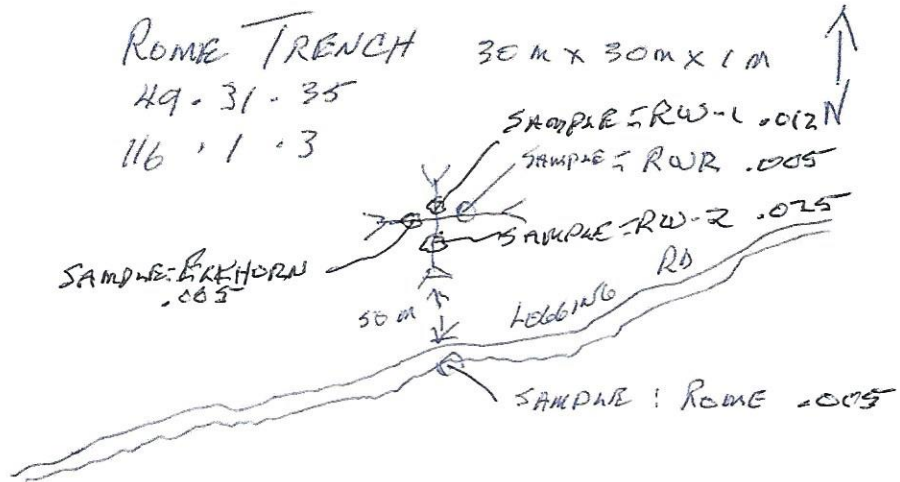 ROME TRENCH 30 m x 30 m x 1 m
49 . 31 . 35
116 . 1 . 3
N
SAMPLE = RW-1 .012
SAMPLE = RWR .005
SAMPLE = RW-2 .025
SAMPLE = ELKHORN
.005
50 m
LOGGING RD
SAMPLE : ROME .005